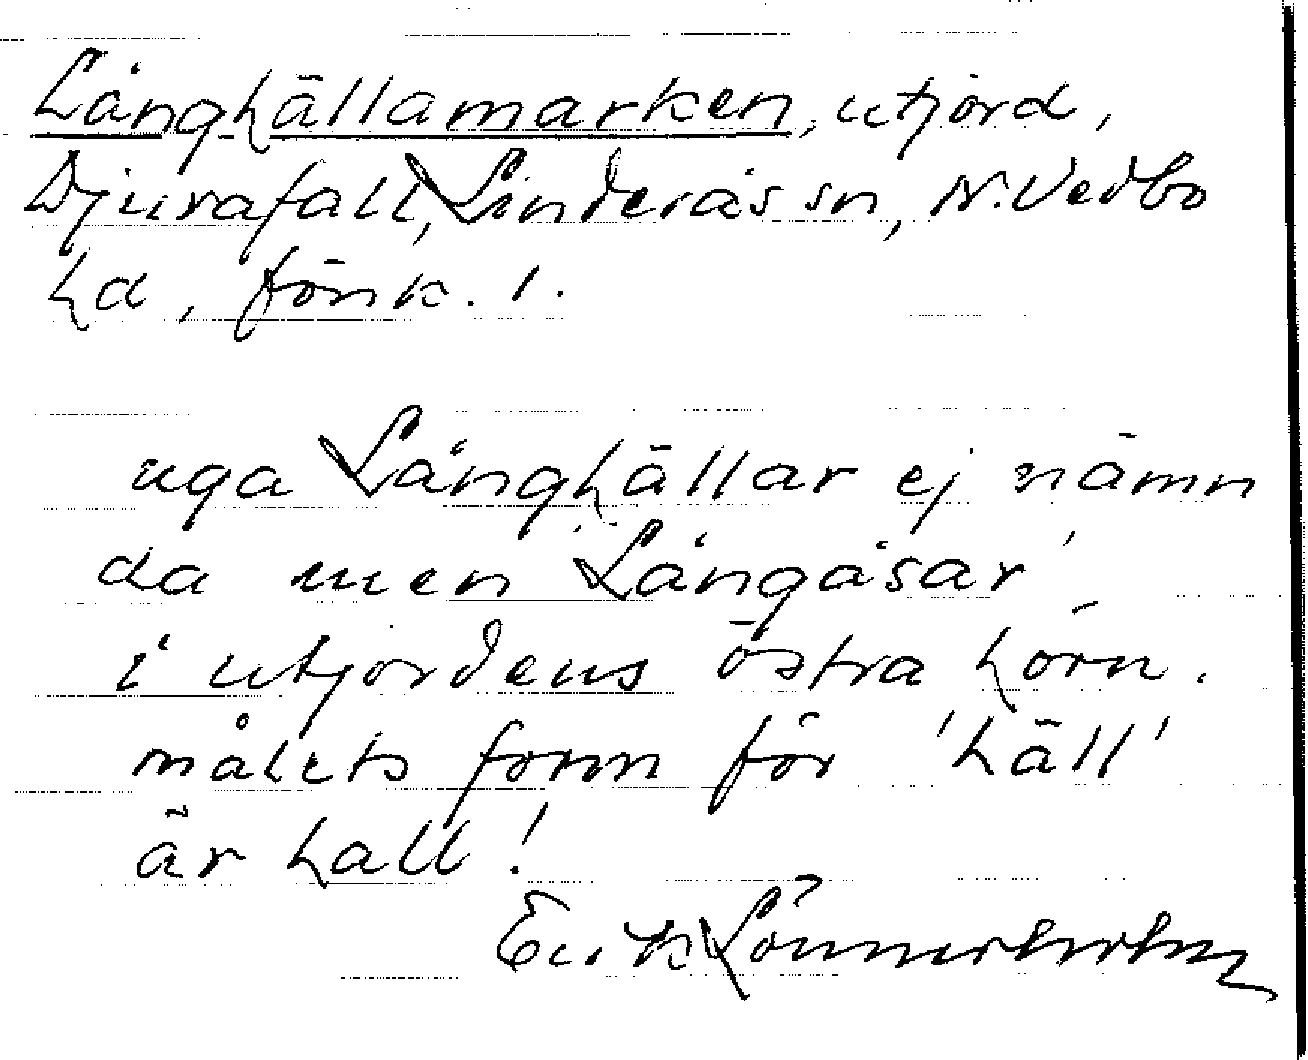 Långhällamarken, utjord,
Djurafall, Linderås sn, N. Vedbo
hd, Jönk. l.
uga Långhällar ej nämn
da men 'Långåsar'
i utjordens östra hörn.
målets form för 'häll'
är hall!
Erik Lönnerholm